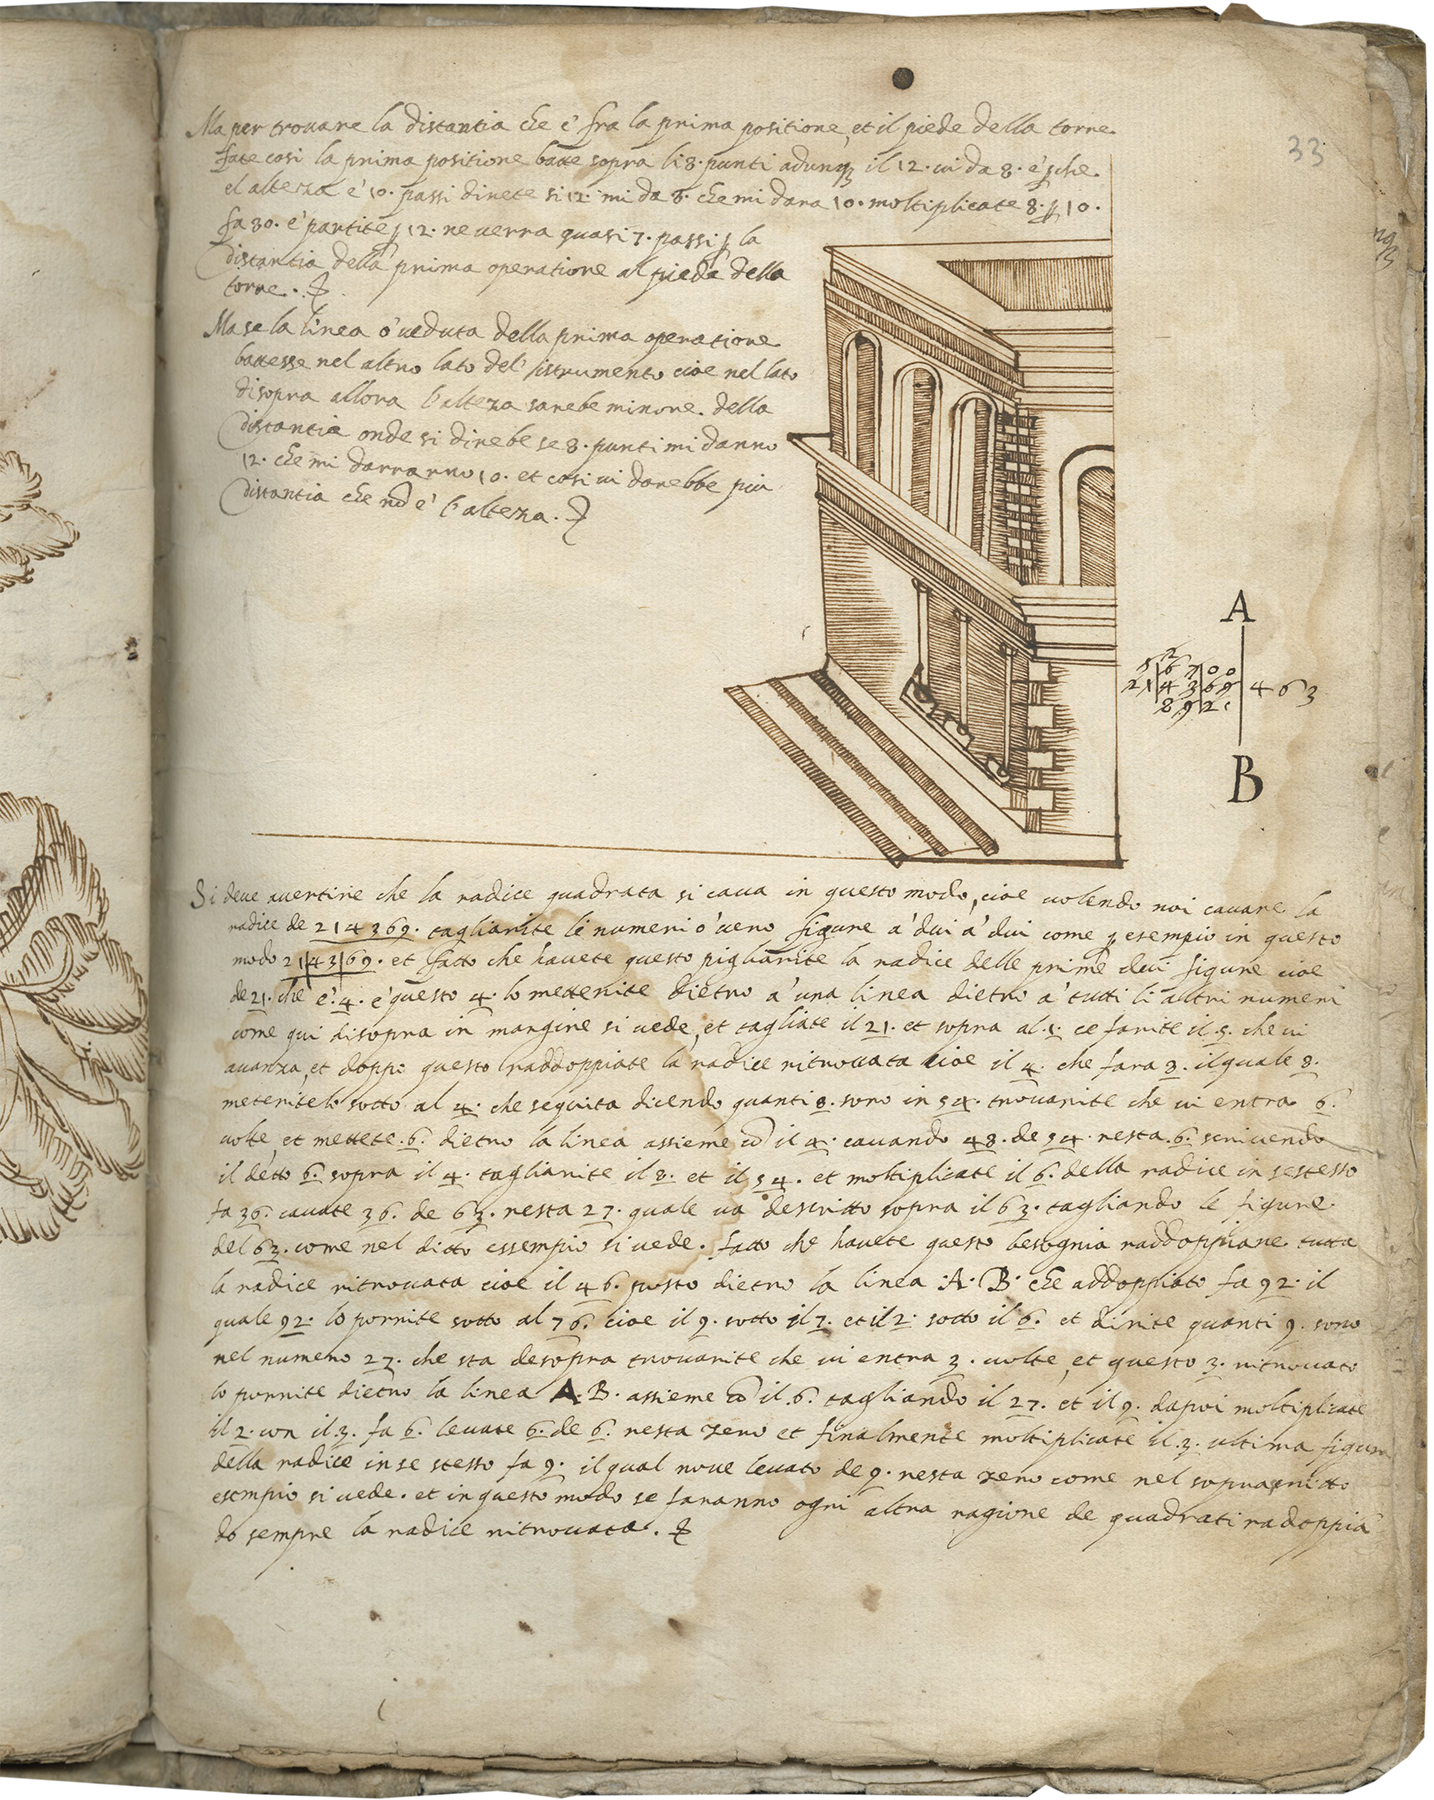 33
Ma per trovare la distantia che è fra la prima positione et il piede della torre
fate cosi la prima positione batte sopra li 8. punti adunq3 il 12. vi da 8. è p che.
el alteza è 10. passi direte si 12. mi da 8. che mi dara 10. moltiplicate 8. p 10.
fa 80. è partite p 12. ne verra quasi 7. passi p la
distantia della prima operatione al piede della
torre.
Ma se la linea ò veduta della prima operatione
battesse nel altro lato del' istrumento cioe nel lato
disopra allora l'alteza sarebe minore. della
distantia onde si direbe se 8. punti mi danno
12. che mi darranno 10. et cosi vi darebbe piu
distantia che nō è l'alteza.
A
5 2 6 7 0 0
21|43|69 | 463
8 9 2
B
Si deve avertire che la radice quadrata si cava in questo modo, cioe volendo noi cavare la
radice de 214369. tagliarite li numeri ò vero figure à dui à dui come p esempio in questo
modo 21|43|69. et fatto che havete questo pigliarite la radice delle prime dui figure cioe
de 21. che è. 4. è questo 4. lo metterite dietro à una linea dietro à tutti li altri numeri
come qui disopra in margine si vede, et tagliate il 21. et sopra al .1. ce farite il 5. che vi
avanza, et doppo questo raddoppiate la radice ritrovata cioe il 4. che fara 8. il quale 8.
meteritelo sotto al 4. che seguita dicendo quanti 8. sono in 54. trovarite che vi entra 6.
volte et mettete .6. dietro la linea assieme cō il 4. cavando 48. de 54. resta .6. scrivendo
il detto 6. sopra il 4. tagliarite il 8. et il 54. et moltiplicate il 6. della radice in sestesso
fa 36. cavate 36. de 63. resta 27. quale va descritto sopra il 63. tagliando le figure.
del 63. come nel ditto essempio si vede. fatto che havete questo besognia raddoppiare tutta
la radice ritrovata cioe il 46. posto dietro la linea .A. B. che addoppiato fa 92. il
quale 92. lo porrite sotto al 76. cioe il 9. sotto il 7. et il 2. sotto il 6. et dirite quanti 9. sono
nel numero 27. che sta desopra trovarite che vi entra 3. volte, et questo 3. ritrovato
lo porrite dietro la linea A. B. assieme cō il .6. tagliando il 27. et il 9. dapoi moltiplicate
il 2. con il .3. fa 6. levate 6. de 6. resta zero et finalmente moltiplicate il .3. ultima figura
della radice in se stesso fa 9. il qual nove levato de 9. resta zero come nel sopra scritto
esempio si vede. et in questo modo se faranno ogni altra ragione de quadrati radoppiā
do sempre la radice ritrovata.